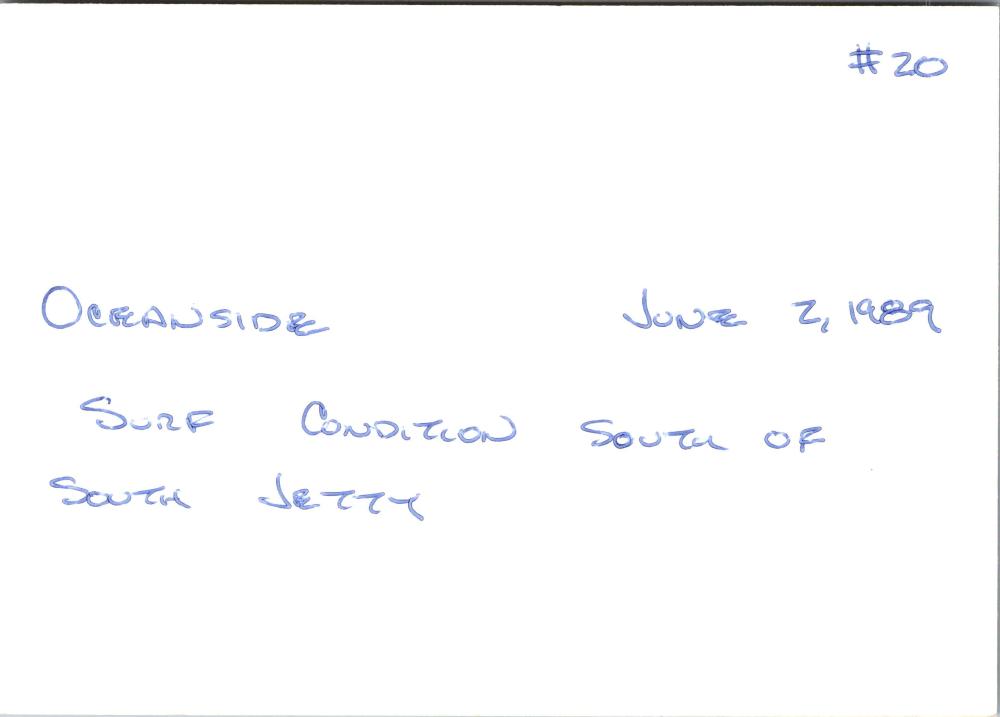 #20
OCEANSIDE JUNE 2, 1989
SURF CONDITION SOUTH OF
SOUTH JETTY